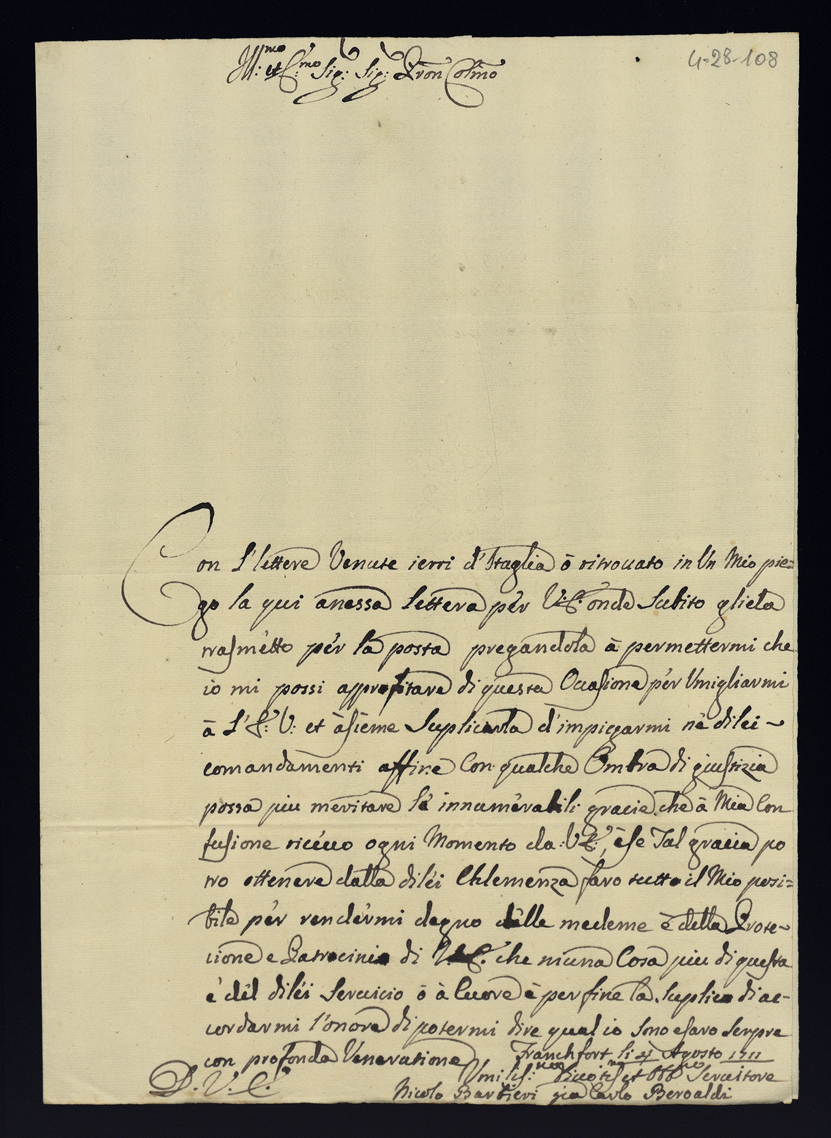 Ill:mo et Ec:mo Sig: Sig: Pron Colmo
4-28-108
Con l'lettere Venute ierri d'Itaglia ò ritrouato in Un Mio pie=
go la qui anessa lettera pér V:E: onde Subito gliela
trasmétto pér la posta pregandola à permettermi che
io mi possi approfitare di questa Ocasione pér Umigliarmi
à L'E: V: et àsieme Suplicarla d'impiegarmi né di lei ~
comandamenti affine Con qualche Ombra di giustizia
possa piu meritare lé innumérabili gracie che à Mia Con
fusione riceuo ogni Momento da: V:E:, è se Tal gracia po
tro ottenere dalla di léi Chlemenza faro tutto il Mio posi=
bile pér rendérmi degno délle medeme è della Prote~
cione e Patrocinio di V:E: che niuna Cosa piu di questa
é dél di léi Seruicio ò à Cuore è per fine la Suplico di ac-
cordarmi l'onore di potermi dire qual io Sono e faro Senpre
con profonda Veneratione
Franchfort li 4 Agosto 1711
D. V. E.
Umiliss:mo Diuotis:mo et Obb:mo Seruitore
Nicolo Barbieri gia Carlo Beroaldi